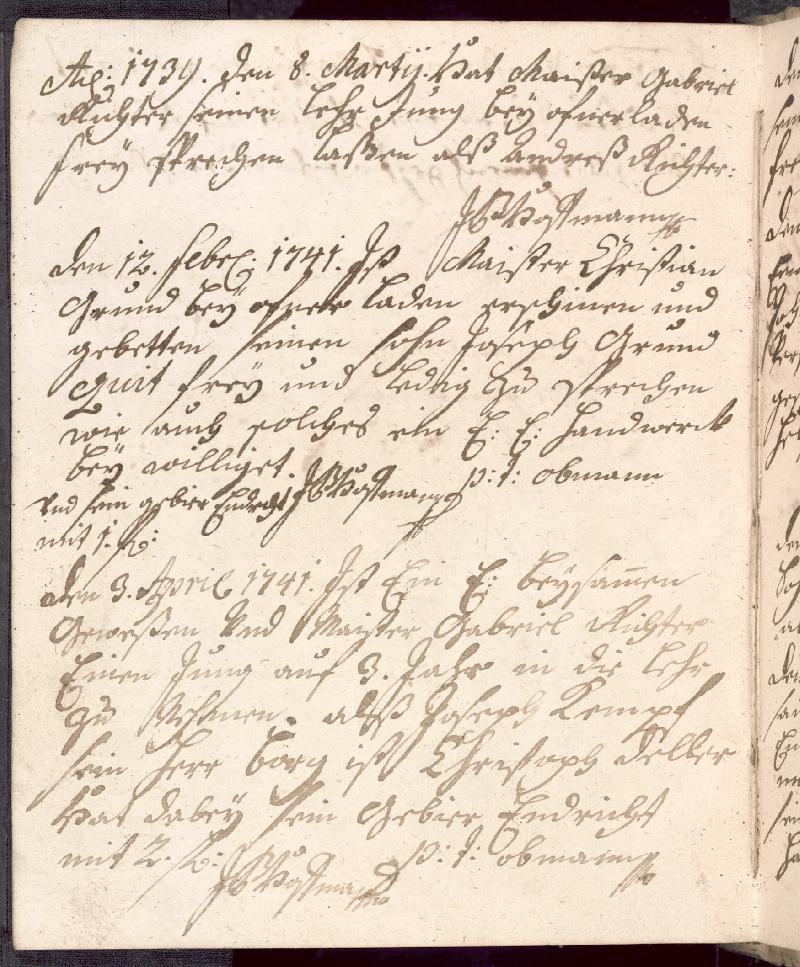 Aõ: 1739. den 8. Martÿ. Hat Maister Gabriel
Richter seinen lehr Jung beÿ ofner laden
freÿ sprechen laßen alß Andreß Richter:
den 12. febrl: 1741. Ist Maister Christian
Grund beÿ ofner laden erschinen und
gebetten seinen sohn Joseph Grund
quit freÿ und ledig zu sprechen
wie auch solches ein E: E: handwerck
beÿ williget. p: t: obmann
Und sein gebier Endricht
mit 1. fl:
den 3. Aprill 1741. Ist Ein E: beysam̅en
Geweßen Und Maister Gabriel Richter
Einen Jung auf 3. Jahr in die lehr
zu Nehmen. alß Joseph Kempf
sein herr borg ist Christoph deller
Hat dabeÿ sein Gebier Endricht
mit 2. fl: p: t: obmann